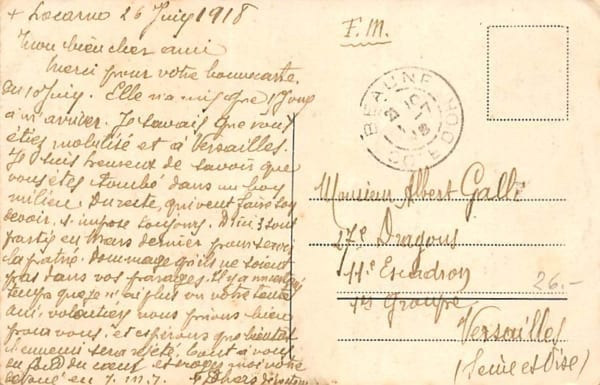 + Locarno 26 Juin 1918
Mon bien cher ami
Merci pour votre bonne carte
du 10 Juin. Elle n'a mis que Jours
à m'arriver. Je savais que vous
étiez mobilisé et à Versailles.
Je suis heureux de savoir que
vous êtes tombé dans un bon
milieu. Du reste, qui veut faire son
devoir, s'impose toujours. sont
partis en Mars dernier pour servir
la patrie. dommage qu'ils ne soient
pas dans vos parages. Il y a
temps que je n'ai plus vu votre tante
aux prions bien
pour vous, et espérons que bientôt
l'ennemi sera rejeté. tout à vous
du fond du cœur et votre
dévoué en
F.M.
BEAUNE
CÔTE D'OR
Monsieur Albert Galli
27e Dragons
11e Escadron
Groupe
Versailles
(Seine et Oise)
26.-